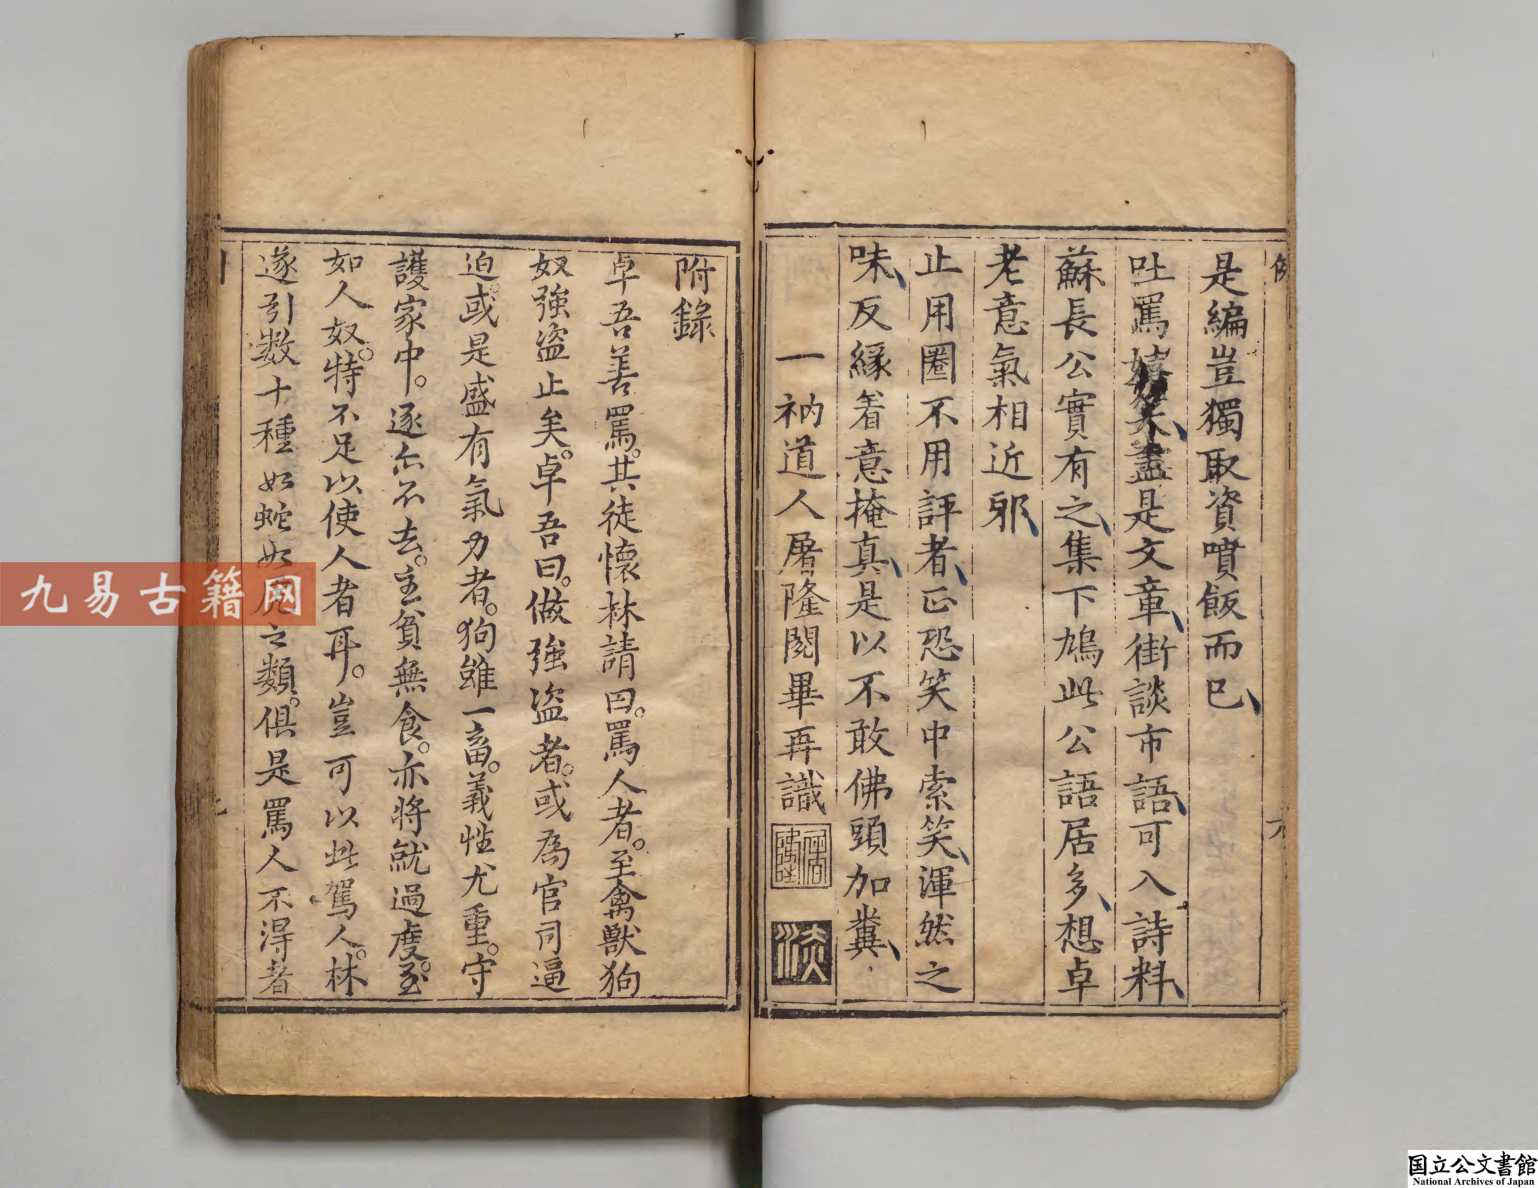 是編豈獨取資噴飯而已
吐罵嬉笑盡是文章街談市語可入詩料
蘇長公實有之集下鳩此公語居多想卓
老意氣相近邪
止用圈不用評者正恐笑中索笑渾然之
味反緣着意掩真是以不敢佛頭加糞
一衲道人屠隆閱畢再識
附錄
卓吾善罵。其徒懷林請曰。罵人者。至禽獸狗
奴強盗止矣。卓吾曰。做強盗者。或為官司逼
迫。或是盛有氣力者。狗雖一畜。義性尤重。守
護家中。逐亦不去。主貧無食。亦將就過度。至
如人奴。特不足以使人者耳。豈可以此駡人。林
遂引数十種如蛇如虎之類。俱是罵人不得者
九易古籍网
国立公文書館
National Archives of Japan